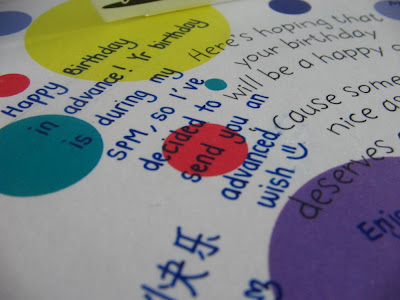 Happy Birthday
in advance! Yr birthday
is during my
SPM, so I've
decided to
send you an
advanced
wish
快乐
Here's hoping that
your birthday
will be a happy
Cause some
nice as
deserves
Enjo